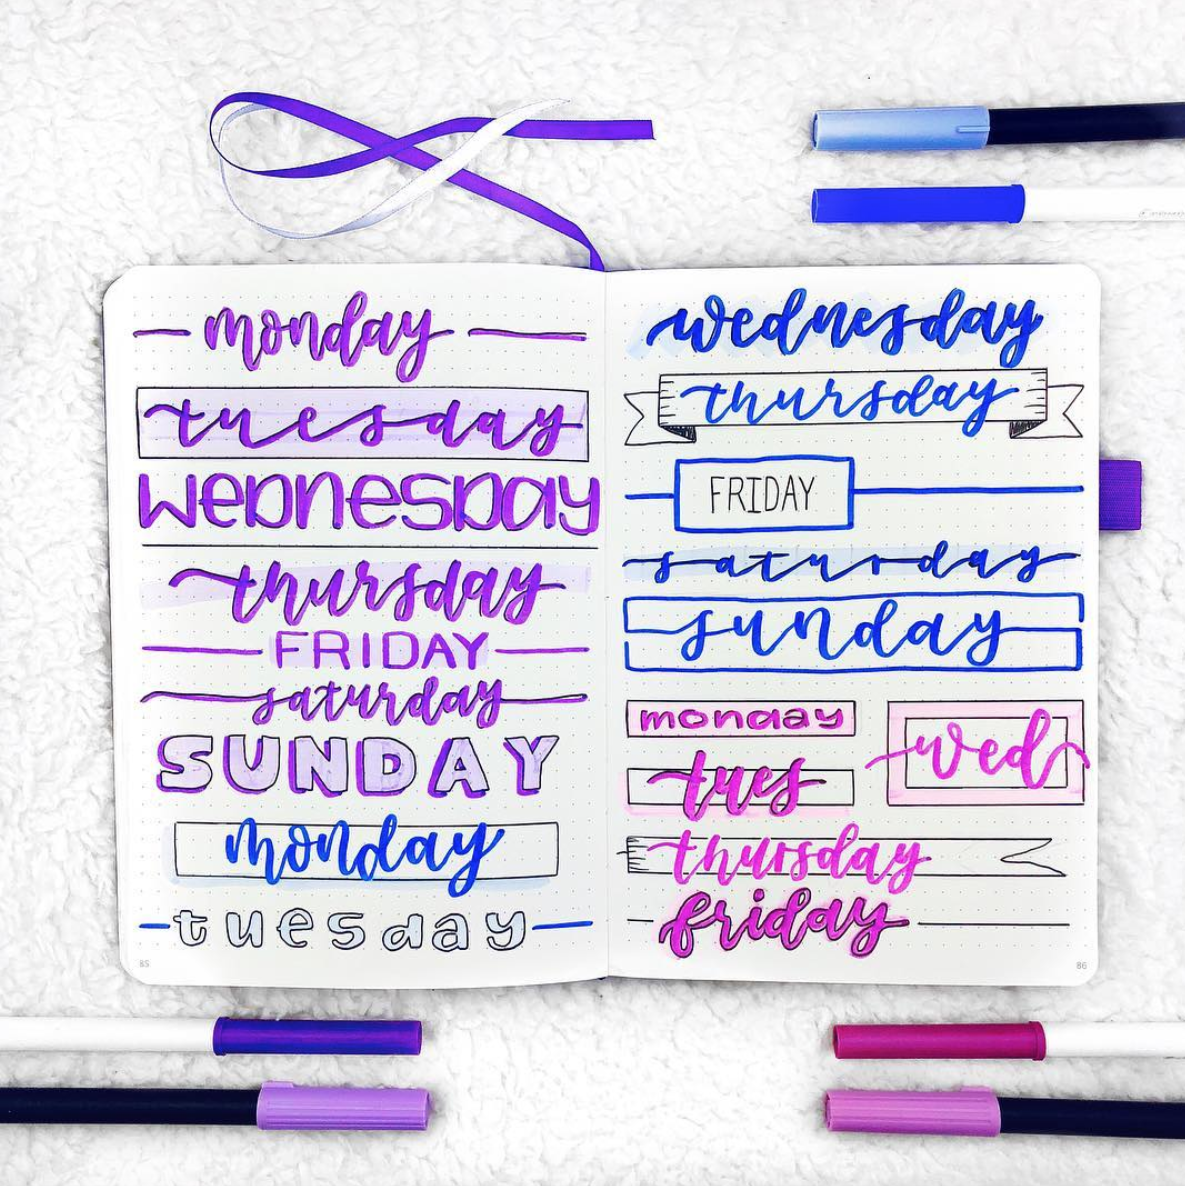 monday
tuesday
WeDnesDay
thursday
FRIDAY
saturday
SUNDAY
monday
tuesday
85
wednesday
thursday
FRIDAY
saturday
sunday
monday
wed
tues
thursday
friday
86